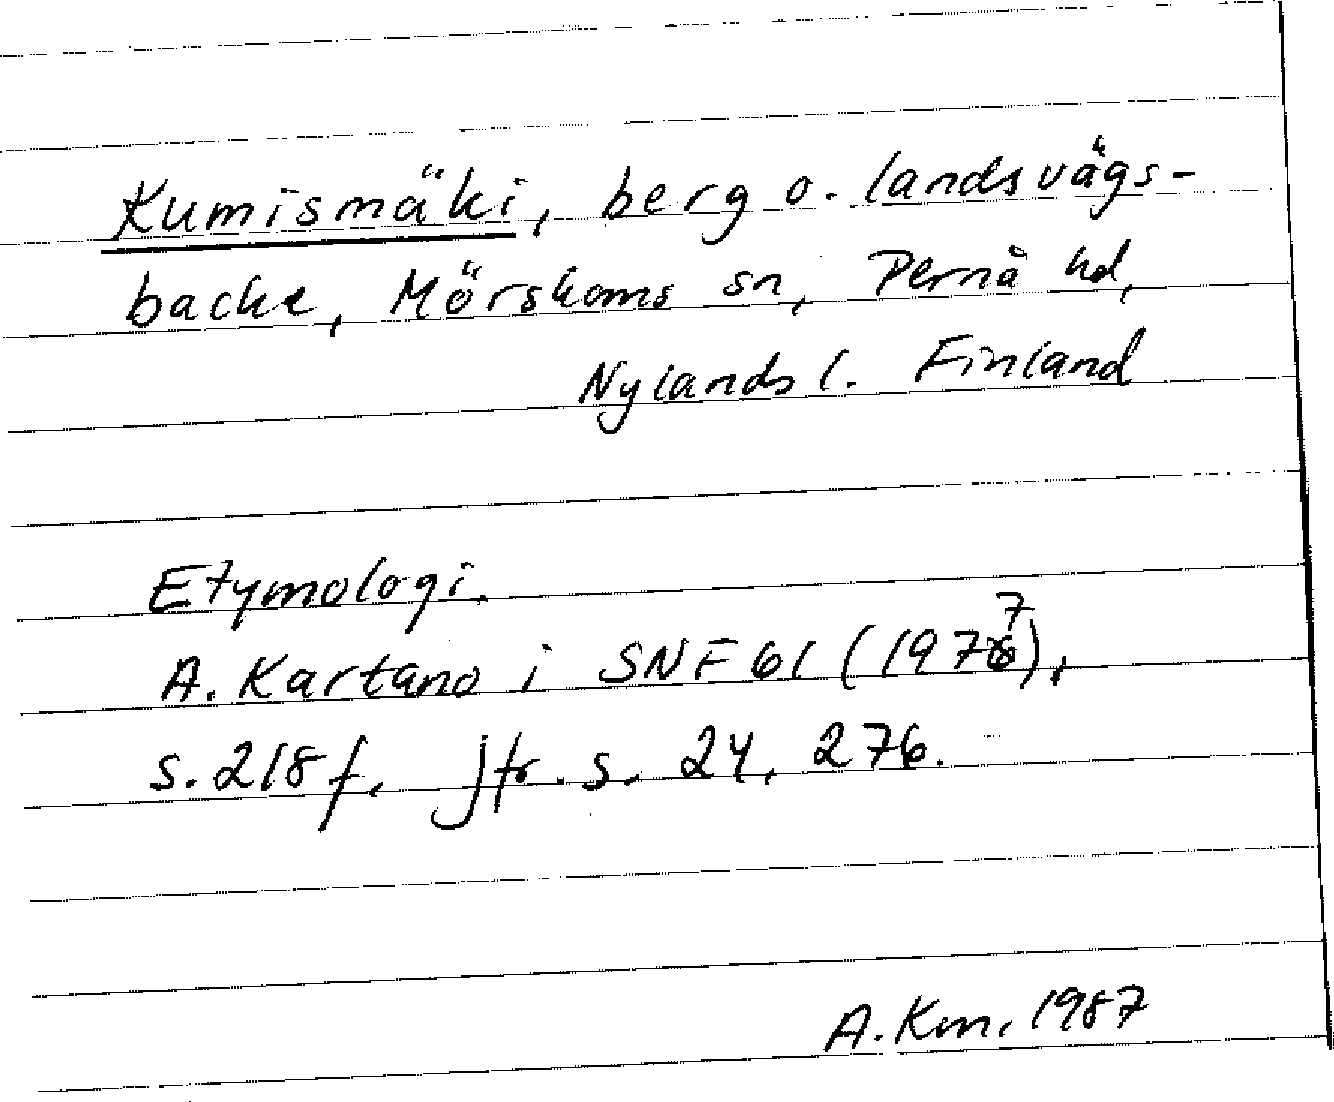 Kumismäki, berg o. landsvägs-
backe, Mörskoms sn, Pernå hd,
Nylands l. Finland
Etymologi.
A. Kartano i SNF 61 (1977),
s. 218 f, jfr. s. 24, 276.
A. Km. 1987